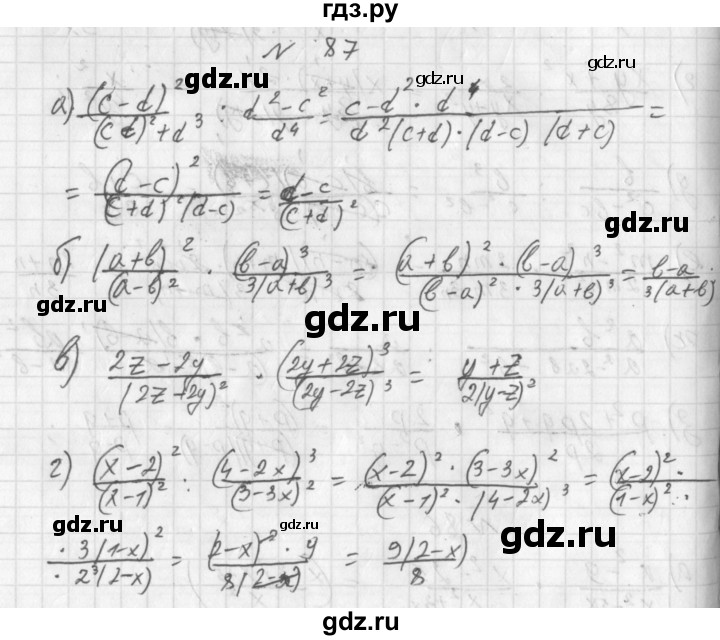 гдз.ру
№ 87
gdz.ru
gdz.ru
а) (c-d)²/(cd)²+d³ : d²-c²/d⁴ = c-d²·d⁴/d²(c+d)·(d-c)(d+c) =
= (d-c)²/(c+d)²(d-c) = d-c/(c+d)²
gdz.ru
б) (a+b)²/(a-b)² · (b-a)³/3(a+b)³ = (a+b)²·(b-a)³/(b-a)²·3(a+b)³ = b-a/3(a+b)
gdz.ru
gdz.ru
gdz.ru
в) 2z-2y/(2z+2y)² · (2y+2z)³/(2y-2z)³ = y+z/2(y-z)²
г) (x-2)²/(x-1)² : (4-2x)³/(3-3x)² = (x-2)²·(3-3x)²/(x-1)²·(4-2x)³ = (x-2)²·/(1-x)²·
gdz.ru
gdz.ru
gdz.ru
·3(1-x)²/·2³(2-x) = (2-x)²·9/8(2-x) = 9(2-x)/8
gdz.ru
gdz.ru
gdz.ru